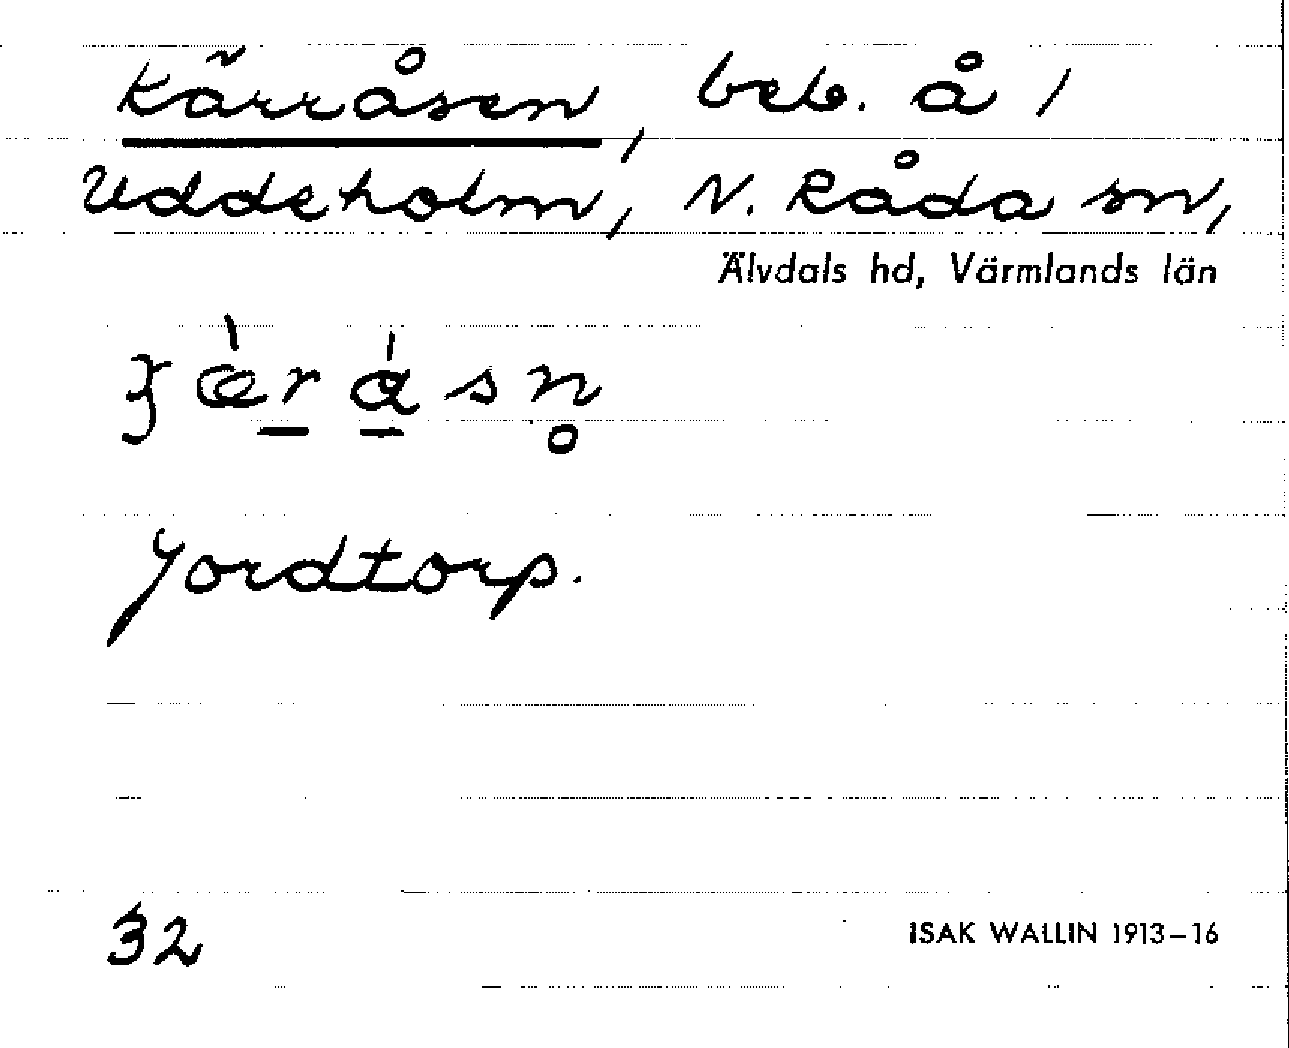 Kärråsen, beb. å 1
Uddeholm, N. Råda sn,
Älvdals hd, Värmlands län
Jordtorp.
32
ISAK WALLIN 1913–16